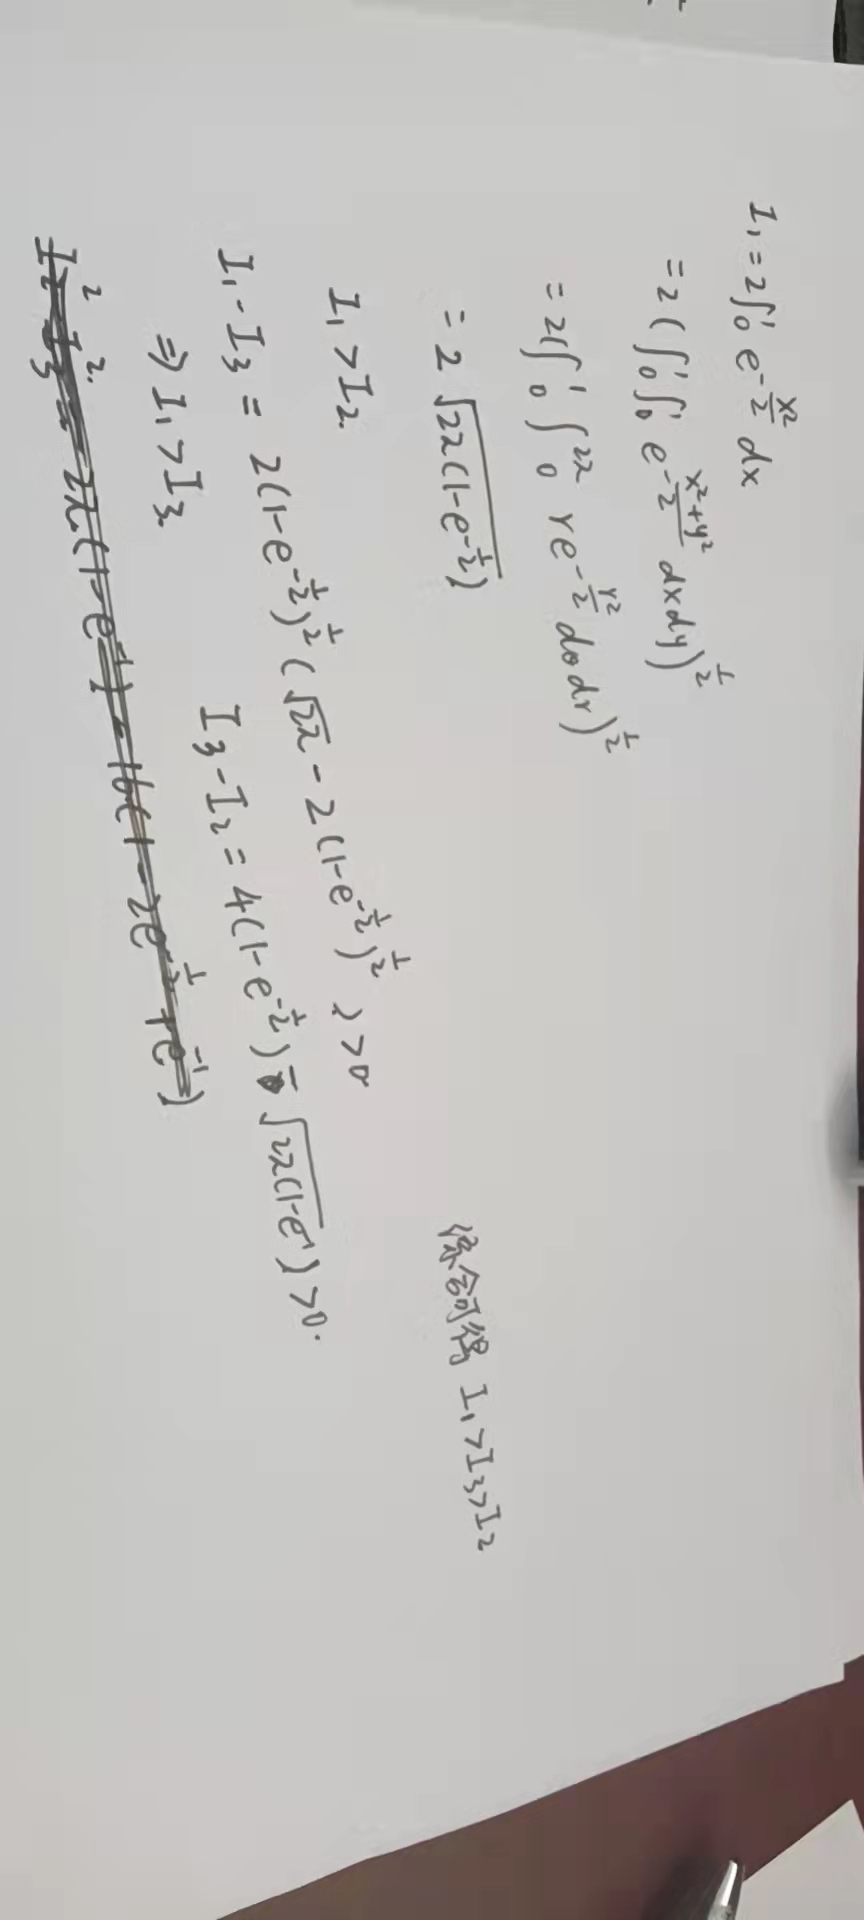 I₁ = 2∫₀¹ e^{-x²/2} dx
= 2(∫₀¹∫₀¹ e^{-(x²+y²)/2} dxdy)^{1/2}
= 2(∫₀¹∫₀^{2π} re^{-r²/2} dθdr)^{1/2}
= 2√(2π(1-e^{-1/2}))
I₁ > I₂.
I₁ - I₃ = 2(1-e^{-1/2})^{1/2} (√2π - 2(1-e^{-1/2})^{1/2}) > 0
⇒ I₁ > I₃.
I₃ - I₂ = 4(1-e^{-1/2}) - √(2π(1-e^{-1})) > 0.
综合可得 I₁ > I₃ > I₂